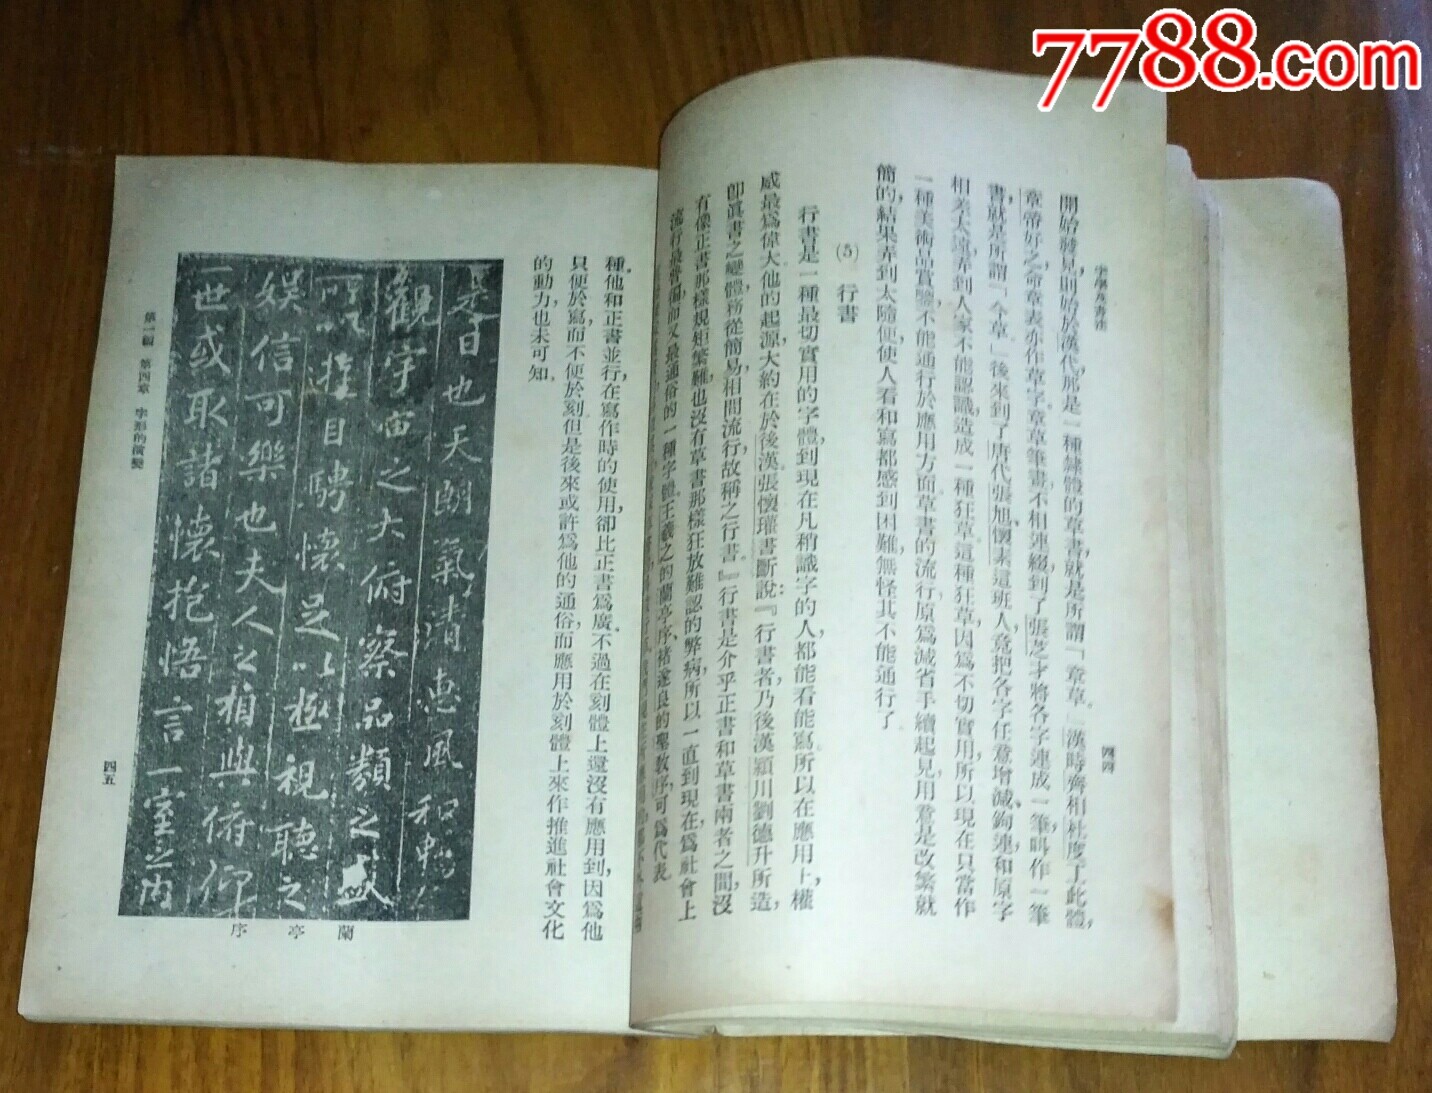 7788.com
字學及書法
四四
開始發見,則始於漢代,那是一種隸體的草書,就是所謂「章草。」漢時齊相杜度工此體,
章帝好之,命章表亦作草字,章草筆畫不相連綴,到了張芝才將各字連成一筆,叫作一筆
書,就是所謂「今草。」後來到了唐代張旭、懷素這班人,竟把各字任意增減、鉤連,和原字
相差太遠,弄到人家不能認識,造成一種狂草,這種狂草因爲不切實用,所以現在只當作
一種美術品賞鑒,不能通行於應用方面,草書的流行,原爲減省手續起見,用意是改繁就
簡的,結果弄到太隨便,使人看和寫都感到困難,無怪其不能通行了。
(5) 行書
行書是一種最切實用的字體,到現在凡稍識字的人,都能看能寫,所以在應用上,權
威最爲偉大。他的起源大約在於後漢,張懷瓘書斷說:『行書者,乃後漢潁川劉德升所造,
卽眞書之變體,務從簡易,相間流行,故稱之行書。』行書是介乎正書和草書兩者之間,沒
有像正書那樣規矩繁難,也沒有草書那樣狂放難認的弊病,所以一直到現在,爲社會上
流行最普徧而又最通俗的一種字體。王羲之的蘭亭序、褚遂良的聖教序可爲代表。
種,他和正書並行,在寫作時的使用,卻比正書爲廣。不過在刻體上還沒有應用到,因爲他
只便於寫而不便於刻,但是後來或許爲他的通俗,而應用於刻體上來,作推進社會文化
的動力,也未可知。
是日也天朗氣清惠風和暢仰
觀宇宙之大俯察品類之盛
所以遊目騁懷足以極視聽之
娛信可樂也夫人之相與俯仰
一世或取諸懷抱悟言一室之內
蘭亭序
第一編 第四章 字形的演變
四五